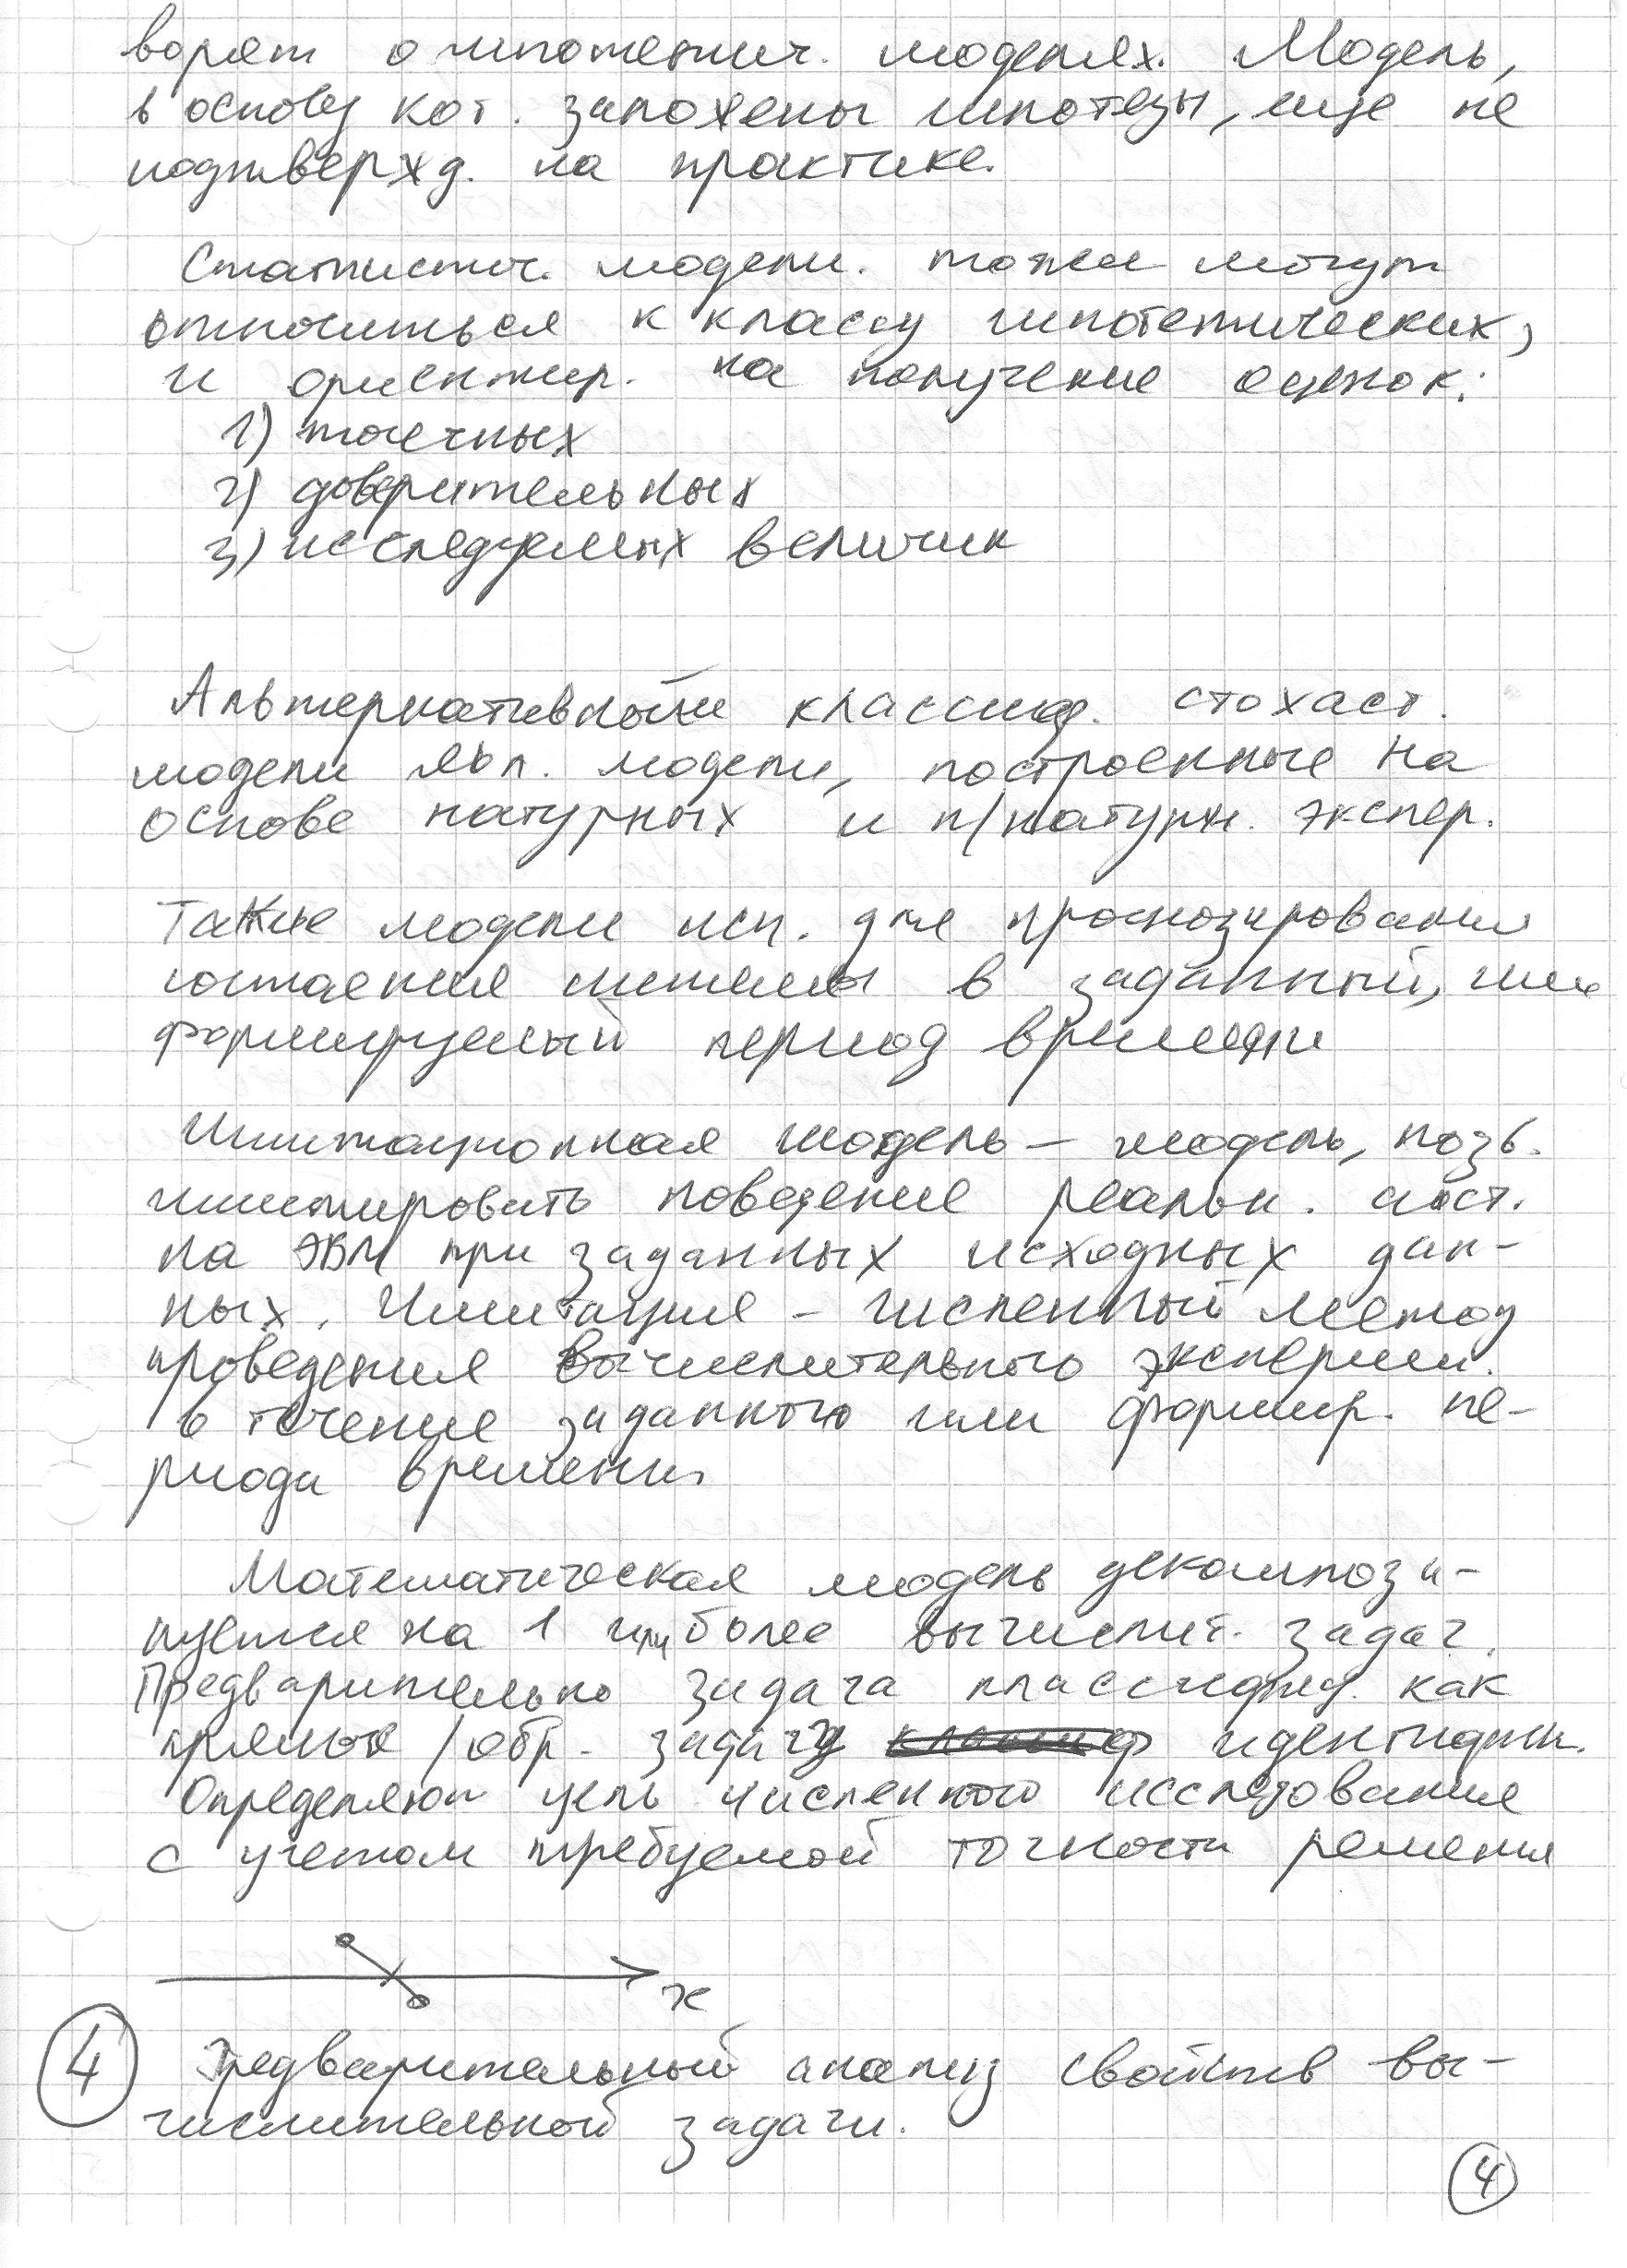 ворят о гипотетич. моделях. Модель,
в основу кот. заложены гипотезы, еще не
подтвержд. на практике.
Статистич. модели. также могут
относиться к классу гипотетических,
и ориентир. на получение оценок:
1) точечных
2) доверительных
3) исследуемых величин
Альтернативными классиф. стохаст.
модели явл. модели, построенные на
основе натурных и п/натурн. экспер.
Такие модели исп. для прогнозирования
состояния системы в заданный, или
формируемый период времени
Имитационная модель – модель, позв.
имитировать поведение реальн. сист.
на ЭВМ при заданных исходных дан-
ных. Имитация – численный метод
проведения вычислительного эксперим.
в течение заданного или формир. пе-
риода времени.
Математическая модель декомпози-
руется на 1 или более вычислит. задач.
Предварительно задача классифиц. как
прямая /обр. задачу идентифик.
Определяют цель численного исследования
с учетом требуемой точности решения
x
4 Предварительный анализ свойств вы-
числительной задачи.
4